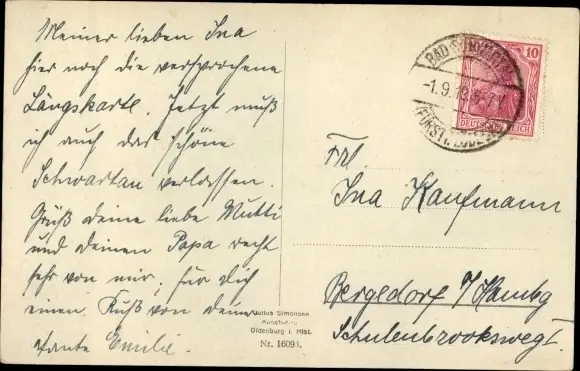 Meiner lieben Ina
hier noch die versprochene
Längskarte. Jetzt muß
ich auch das schöne
Schwartau verlassen.
Grüß deine liebe Mutti
und deinen Papa recht
sehr von mir, für dich
einen Kuß von deiner
Tante Emilie.
Julius Simonsen
Kunstverlag
Oldenburg i. Hlst.
Nr. 16091.
BAD SCHWARTAU
-1.9.19.6-7V
(FÜRST. LÜBECK)
10
DEUTSCHES REICH
Frl.
Ina Kaufmann
Bergedorf b/Hambg
Schulenbrooksweg 1.